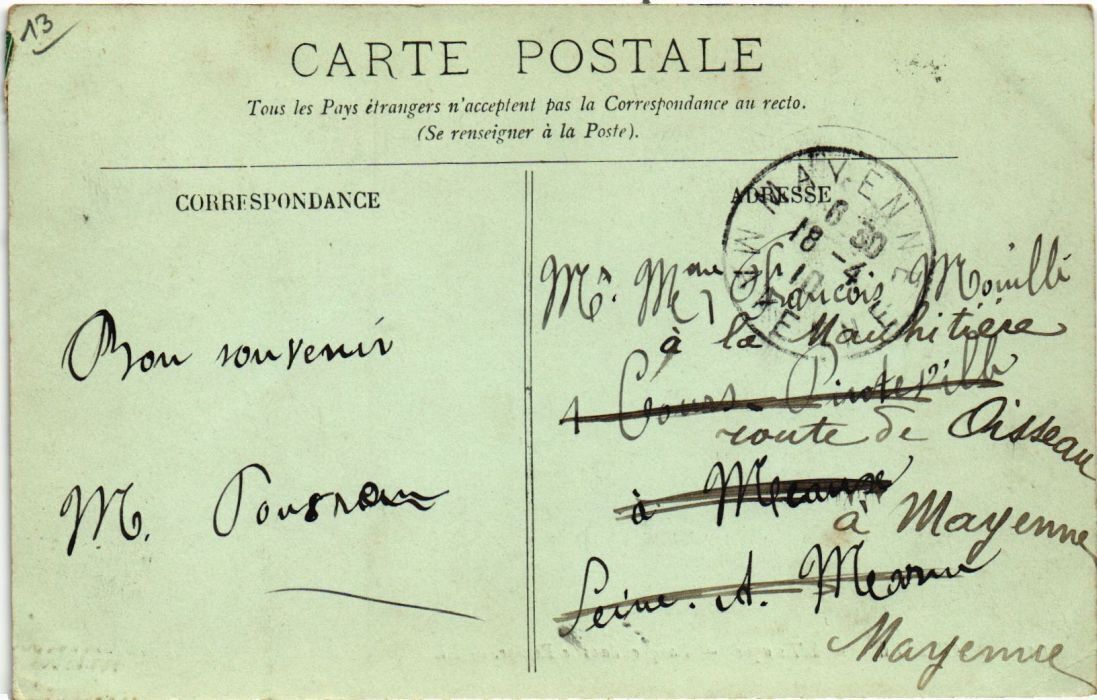 13
CARTE POSTALE
Tous les Pays étrangers n'acceptent pas la Correspondance au recto.
(Se renseigner à la Poste).
CORRESPONDANCE
ADRESSE
MAYENNE
8 30
18 - 4
10
MAYENNE
Bon souvenir
M.
Mr. Mme François
à la
1 Cours
route de Oisseau
à Meaux
à Mayenne
Seine. et. Marne
Mayenne